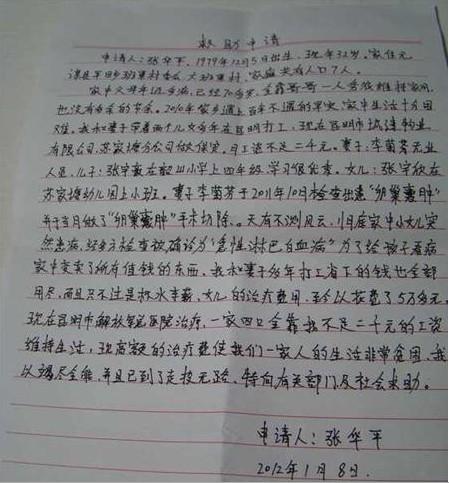 救助申请
申请人：张华平，1979年12月5日出生，现年32岁。家住元
谋县平田乡班果村委会大班果村，家庭共有人口7人。
家中父母年迈多病，已经70多岁，全靠哥哥一人劳苦维持家用，
也没有多余的节余。2010年家乡遇上百年不遇的旱灾，家中生活十分困
难。我和妻子带着两个儿女多年在昆明打工，现在昆明市 物业
有限公司苏家塘分公司做保安，月工资不足二千元。妻子：李菊芳无业
人员，儿子：张宇 在 小学上四年级，学习很优秀。女儿：张宇欣在
苏家塘幼儿园上小班。妻子李菊芳于2011年10月检查出患“卵巢囊肿”
并于当月做了“卵巢囊肿”手术切除。天有不测风云，旧居家中小女儿突
然患病，经多方检查被确诊为“急性淋巴白血病”为了给孩子看病
家中变卖了所有值钱的东西，我和妻子多年打工省下的钱也全部
用尽，而且只不过是杯水车薪，女儿的治疗费用，至今以花费了5万多元，
现在昆明市解放军 医院治疗，一家四口全靠我不足二千元的工资
维持生活，现高额的治疗费使我们一家人的生活非常贫困，我
以竭尽全能，并且已到了走投无路，特向有关部门及社会求助。
申请人：张华平
2012年1月8日.